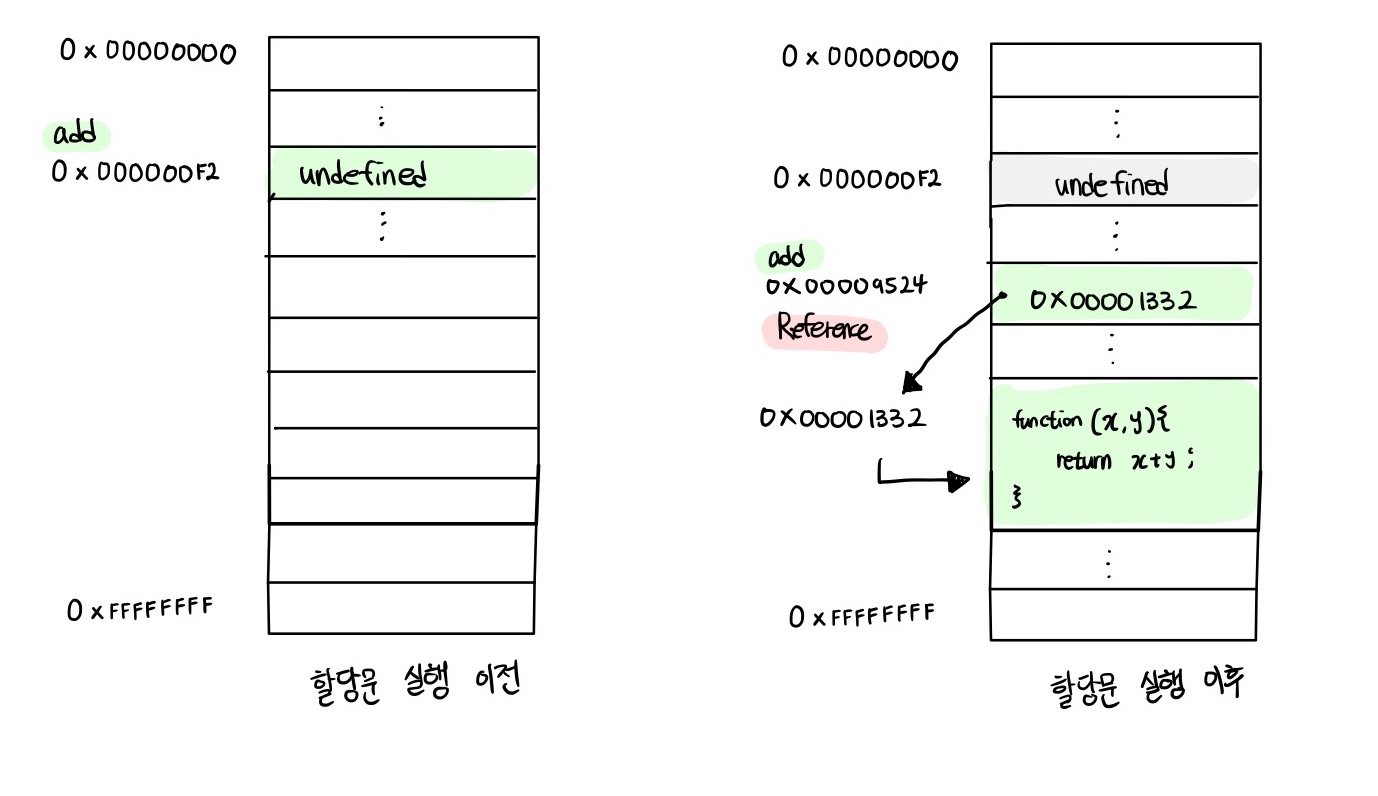 0x00000000
⋮
add
0x000000F2
undefined
⋮
0xFFFFFFFF
할당문 실행 이전
0x00000000
⋮
0x000000F2
undefined
⋮
add
0x00009524
0x00001332
Reference
⋮
0x00001332
function (x,y){
return x+y ;
}
⋮
0xFFFFFFFF
할당문 실행 이후